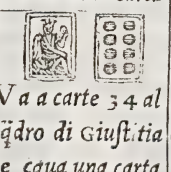 Va a carte 34 al
q̃dro di Giuſtitia
e caua una carta